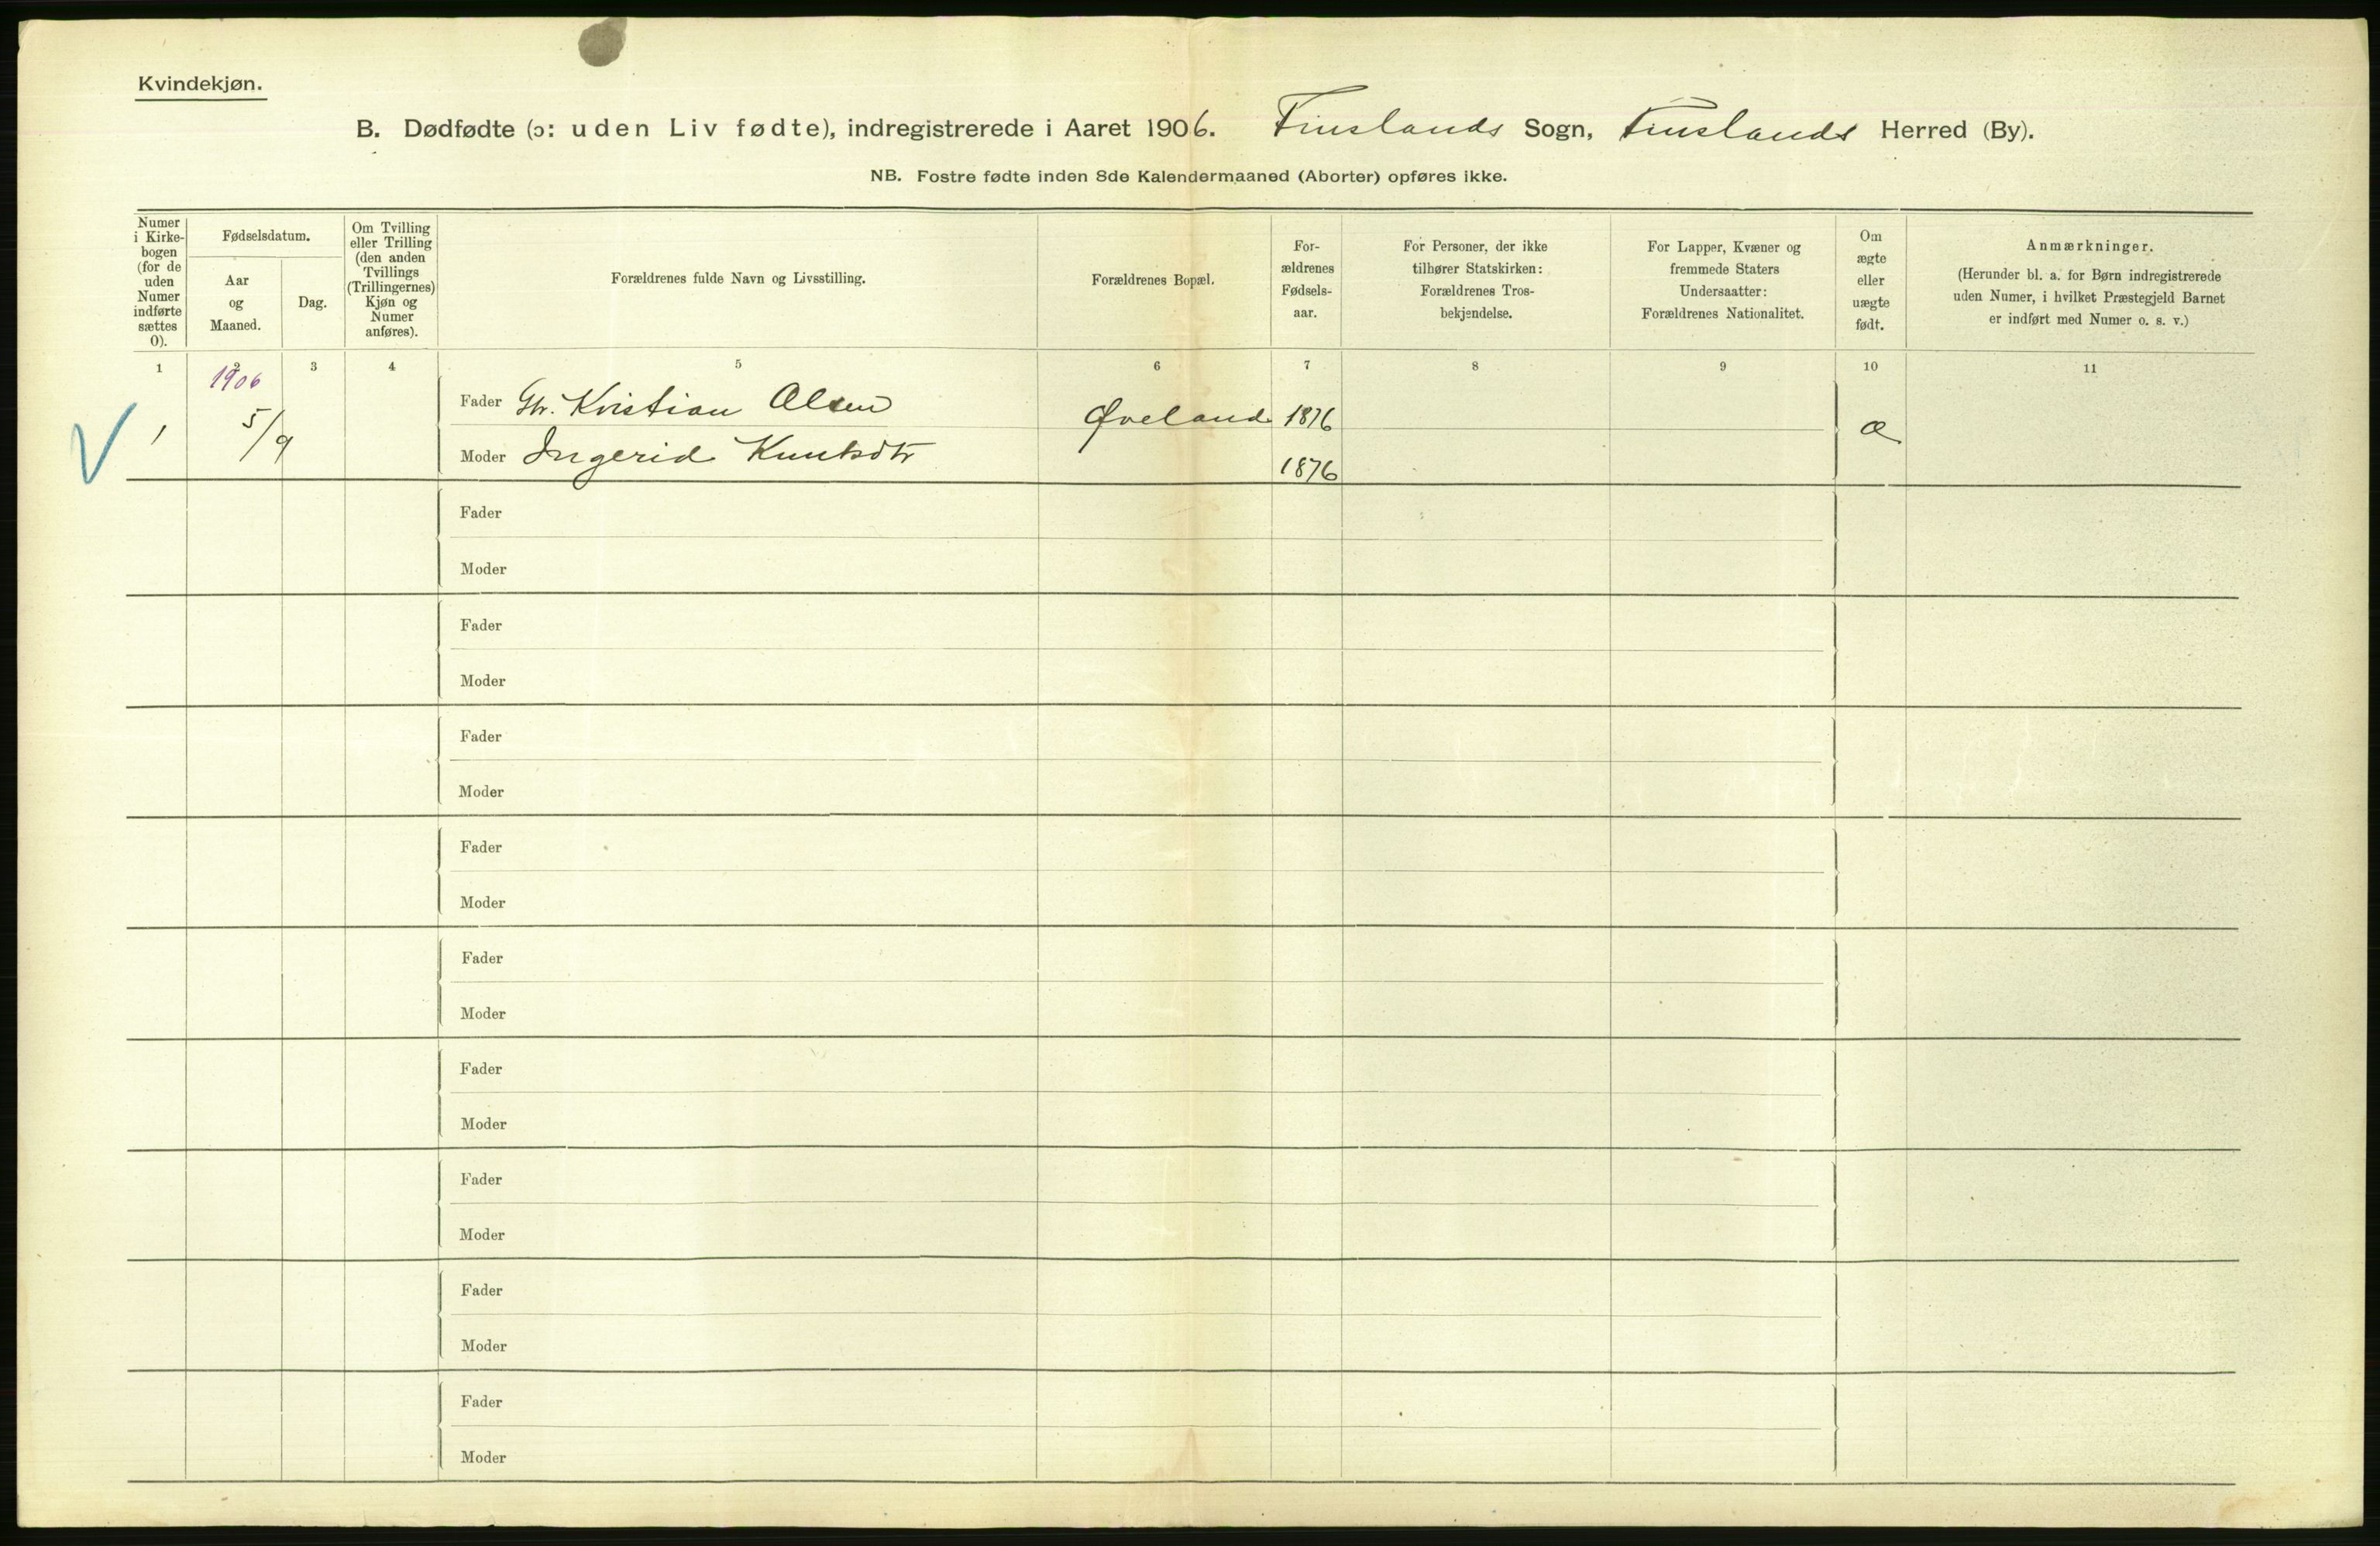 Kvindekjøn.
B. Dødfødte (ɔ: uden Liv fødte), indregistrerede i Aaret 1906. Finslands Sogn, Finslands Herred (By).
NB. Fostre fødte inden 8de Kalendermaaned (Aborter) opføres ikke.
Numer
i Kirke-
bogen
(for de
uden
Numer
indførte
sættes
0).
Fødselsdatum.
Aar
og
Maaned.
Dag.
Om Tvilling
eller Trilling
(den anden
Tvillings
(Trillingernes)
Kjøn og
Numer
anføres).
Forældrenes fulde Navn og Livsstilling.
Forældrenes Bopæl.
For-
ældrenes
Fødsels-
aar.
For Personer, der ikke
tilhører Statskirken:
Forældrenes Tros-
bekjendelse.
For Lapper, Kvæner og
fremmede Staters
Undersaatter:
Forældrenes Nationalitet.
Om
ægte
eller
uægte
født.
Anmærkninger.
(Herunder bl. a. for Børn indregistrerede
uden Numer, i hvilket Præstegjeld Barnet
er indført med Numer o. s. v.)
1 2 3 4 5 6 7 8 9 10 11
1906
V 1 5/9 Fader Gbr. Kristian Olsen Øveland 1876 æ
Moder Ingerid Knutsdtr 1876
Fader
Moder
Fader
Moder
Fader
Moder
Fader
Moder
Fader
Moder
Fader
Moder
Fader
Moder
Fader
Moder
Fader
Moder